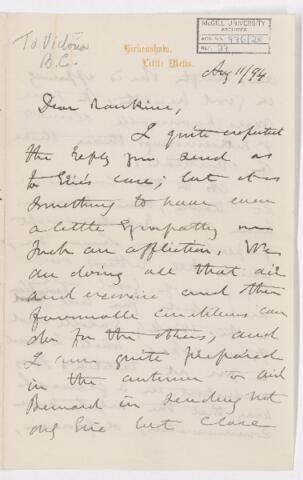 To Victoria
B.C.
McGILL UNIVERSITY
ARCHIVES
ACC. NO. 976/20
REF. 27
Birkenshaw,
Little Metis.
Aug 11/94
Dear Rankine,
I quite expected
the reply you send as
to Eric's case; but it is
something to have even
a little sympathy in
such an affliction. We
are doing all that air
and exercise and other
favourable conditions can
do for the others, and
I am quite prepared
in the autumn to aid
Bernard in sending not
only Eric but Clare